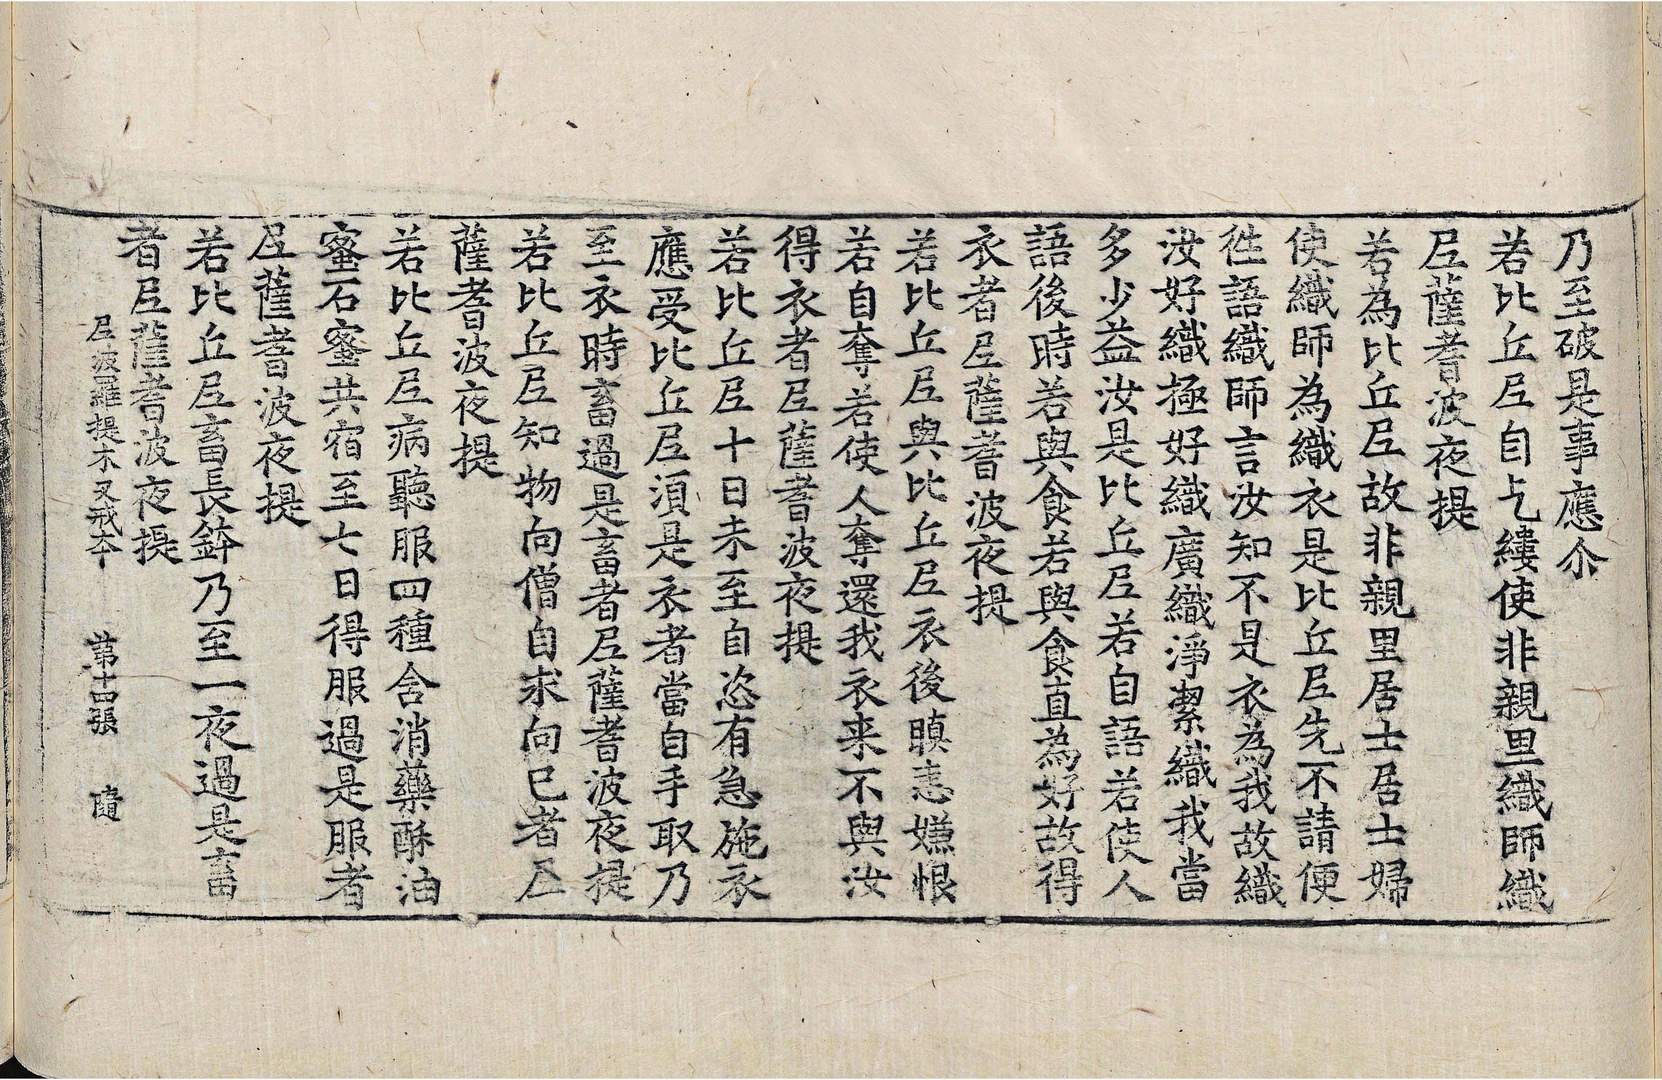 乃至破是事應尒
若比丘尼自乞縷使非親里織師織
尼薩耆波夜提
若為比丘尼故非親里居士居士婦
使織師為織衣是比丘尼先不請便
徃語織師言汝知不是衣為我故織
汝好織極好織廣織淨潔織我當
多少益汝是比丘尼若自語若使人
語後時若與食若與食直為好故得
衣者尼薩耆波夜提
若比丘尼與比丘尼衣後瞋恚嫌恨
若自奪若使人奪還我衣来不與汝
得衣者尼薩耆波夜提
若比丘尼十日未至自恣有急施衣
應受比丘尼湏是衣者當自手取乃
至衣時畜過是畜者尼薩耆波夜提
若比丘尼知物向僧自求向已者尼
薩耆波夜提
若比丘尼病聽服四種含消藥酥油
蜜石蜜共宿至七日得服過是服者
尼薩耆波夜提
若比丘尼畜長鉢乃至一夜過是畜
者尼薩耆波夜提
尼波羅提木叉戒夲 第十四張 隨